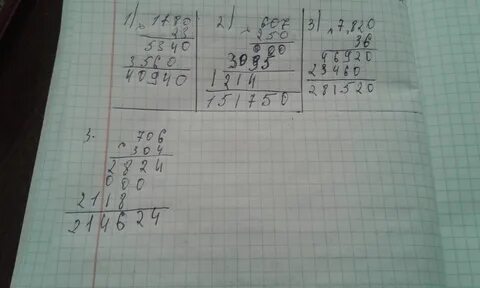 1) 1780
× 23
5340
3560
40940
2) 607
× 250
000
3035
1214
151750
3) × 7820
36
46920
23460
281520
3. 706
× 304
2824
000
2118
214624